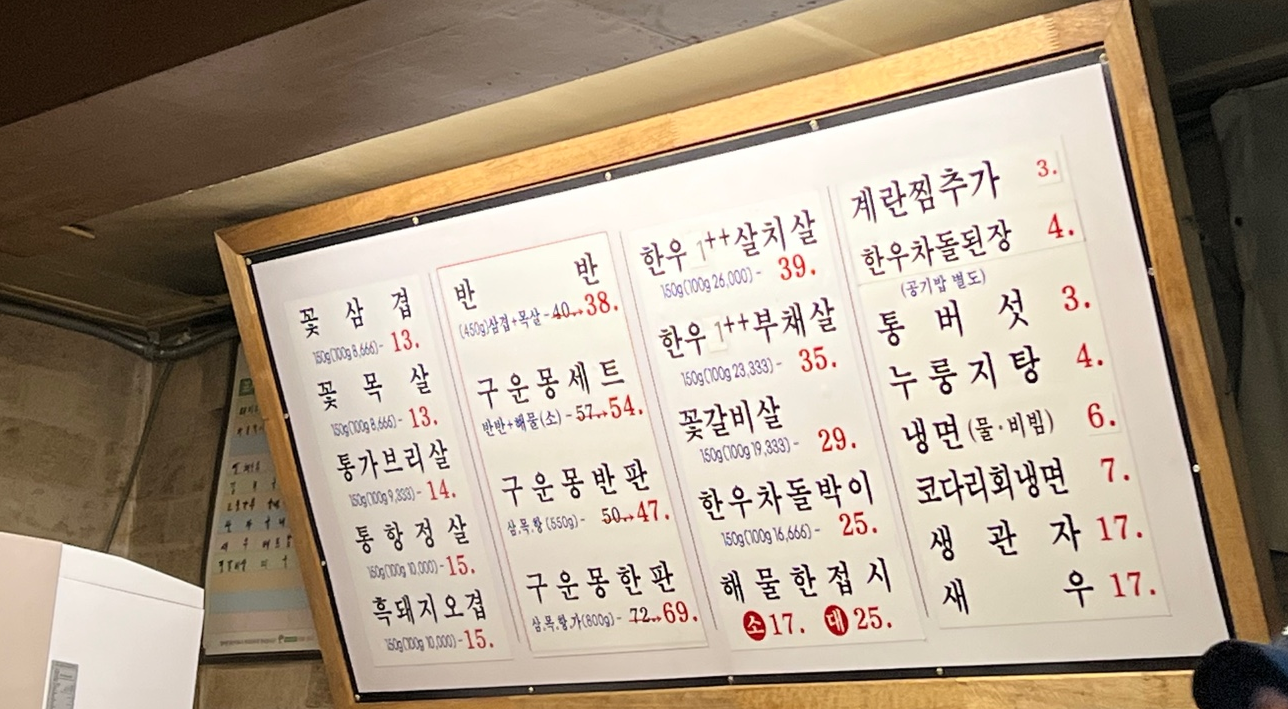 꽃 삼 겹
150g(100g 8,666)- 13.
꽃 목 살
150g(100g 8,666)- 13.
통가브리살
150g(100g 9,333)- 14.
통항정살
150g(100g 10,000)- 15.
흑돼지오겹
150g(100g 10,000)- 15.
반 반
(450g)삼겹+목살-40→38.
구운몽세트
반반+해물(소)-57→54.
구운몽반판
삼.목.항(550g)- 50→47.
구운몽한판
삼.목.항.가(800g)- 72→69.
한우 1++살치살
150g(100g 26,000)- 39.
한우 1++부채살
150g(100g 23,333)- 35.
꽃갈비살
150g(100g 19,333)- 29.
한우차돌박이
150g(100g 16,666)- 25.
해물한접시
소 17. 대 25.
계란찜추가 3.
한우차돌된장 4.
(공기밥 별도)
통 버 섯 3.
누룽지탕 4.
냉면(물·비빔) 6.
코다리회냉면 7.
생 관 자 17.
새 우 17.